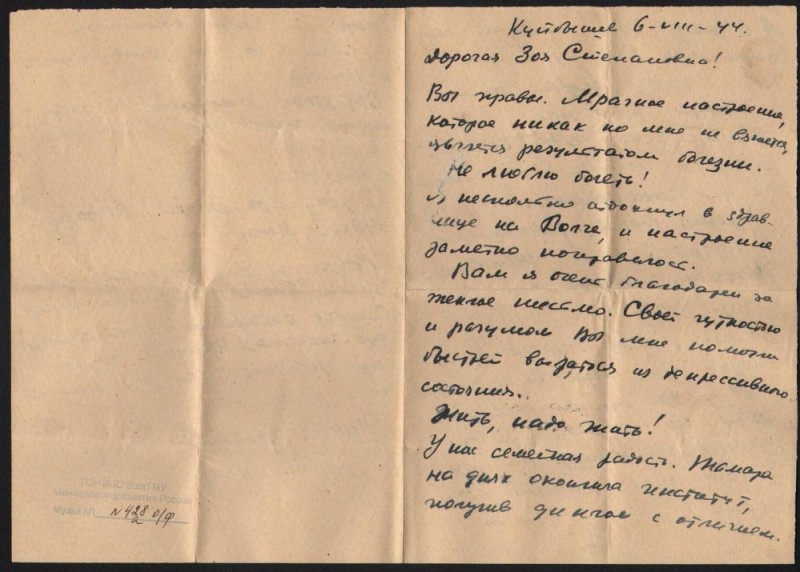 Куйбышев 6-VIII-44.
Дорогая Зоя Степановна!
Вы правы. Мрачное настроение,
которое никак ко мне не вяжется,
является результатом болезни.
Не люблю болеть!
Я несколько отдохнул в здрав-
нице на Волге, и настроение
заметно поправилось.
Вам я очень благодарен за
теплое письмо. Своей чуткостью
и разумом Вы мне помогли
быстрей выбраться из депрессивного
состояния.
Жить, надо жить!
У нас семейная радость. Тамара
на днях окончила институт,
получив диплом с отличием.
ГОУ ВПО
Минздравсоцразвития России
Музей КП № 428 о/ф